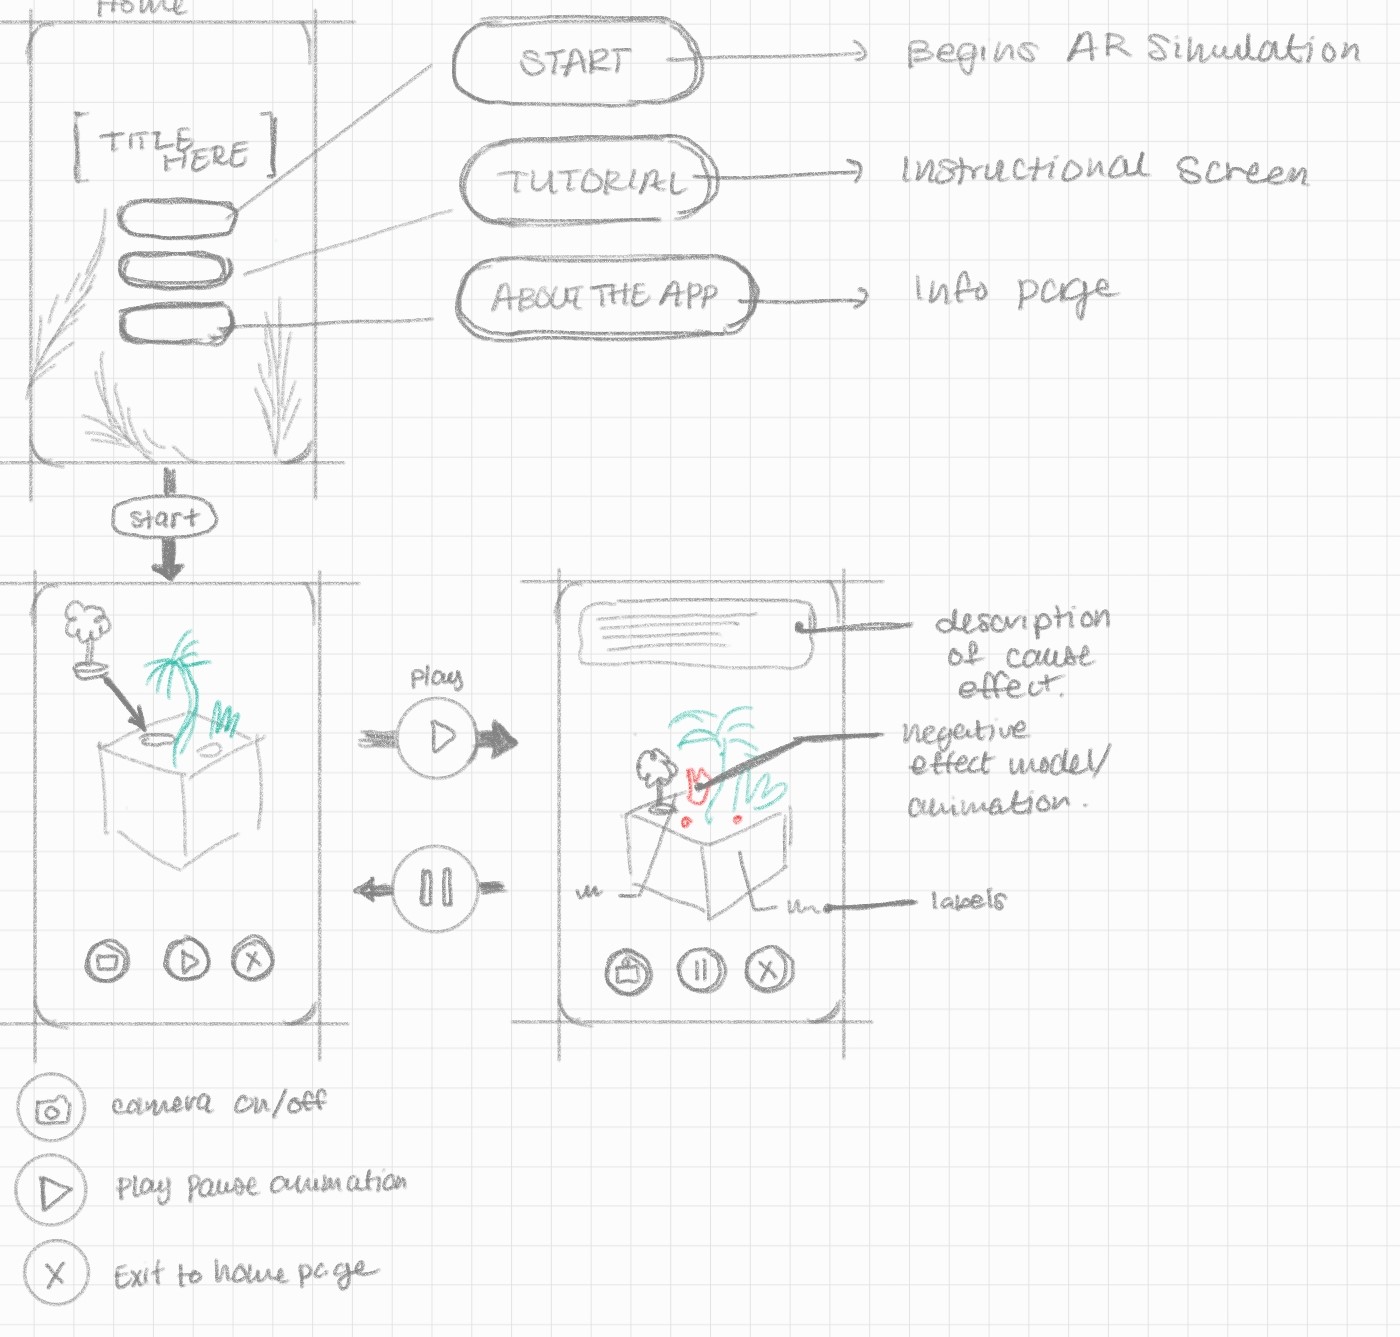 Home
[TITLE
HERE]
START
Begins AR Simulation
TUTORIAL
Instructional Screen
ABOUT THE APP
Info page
start
Play
description
of cause
effect.
negative
effect model/
animation.
labels
X
X
camera on/off
Play pause animation
X
Exit to home page